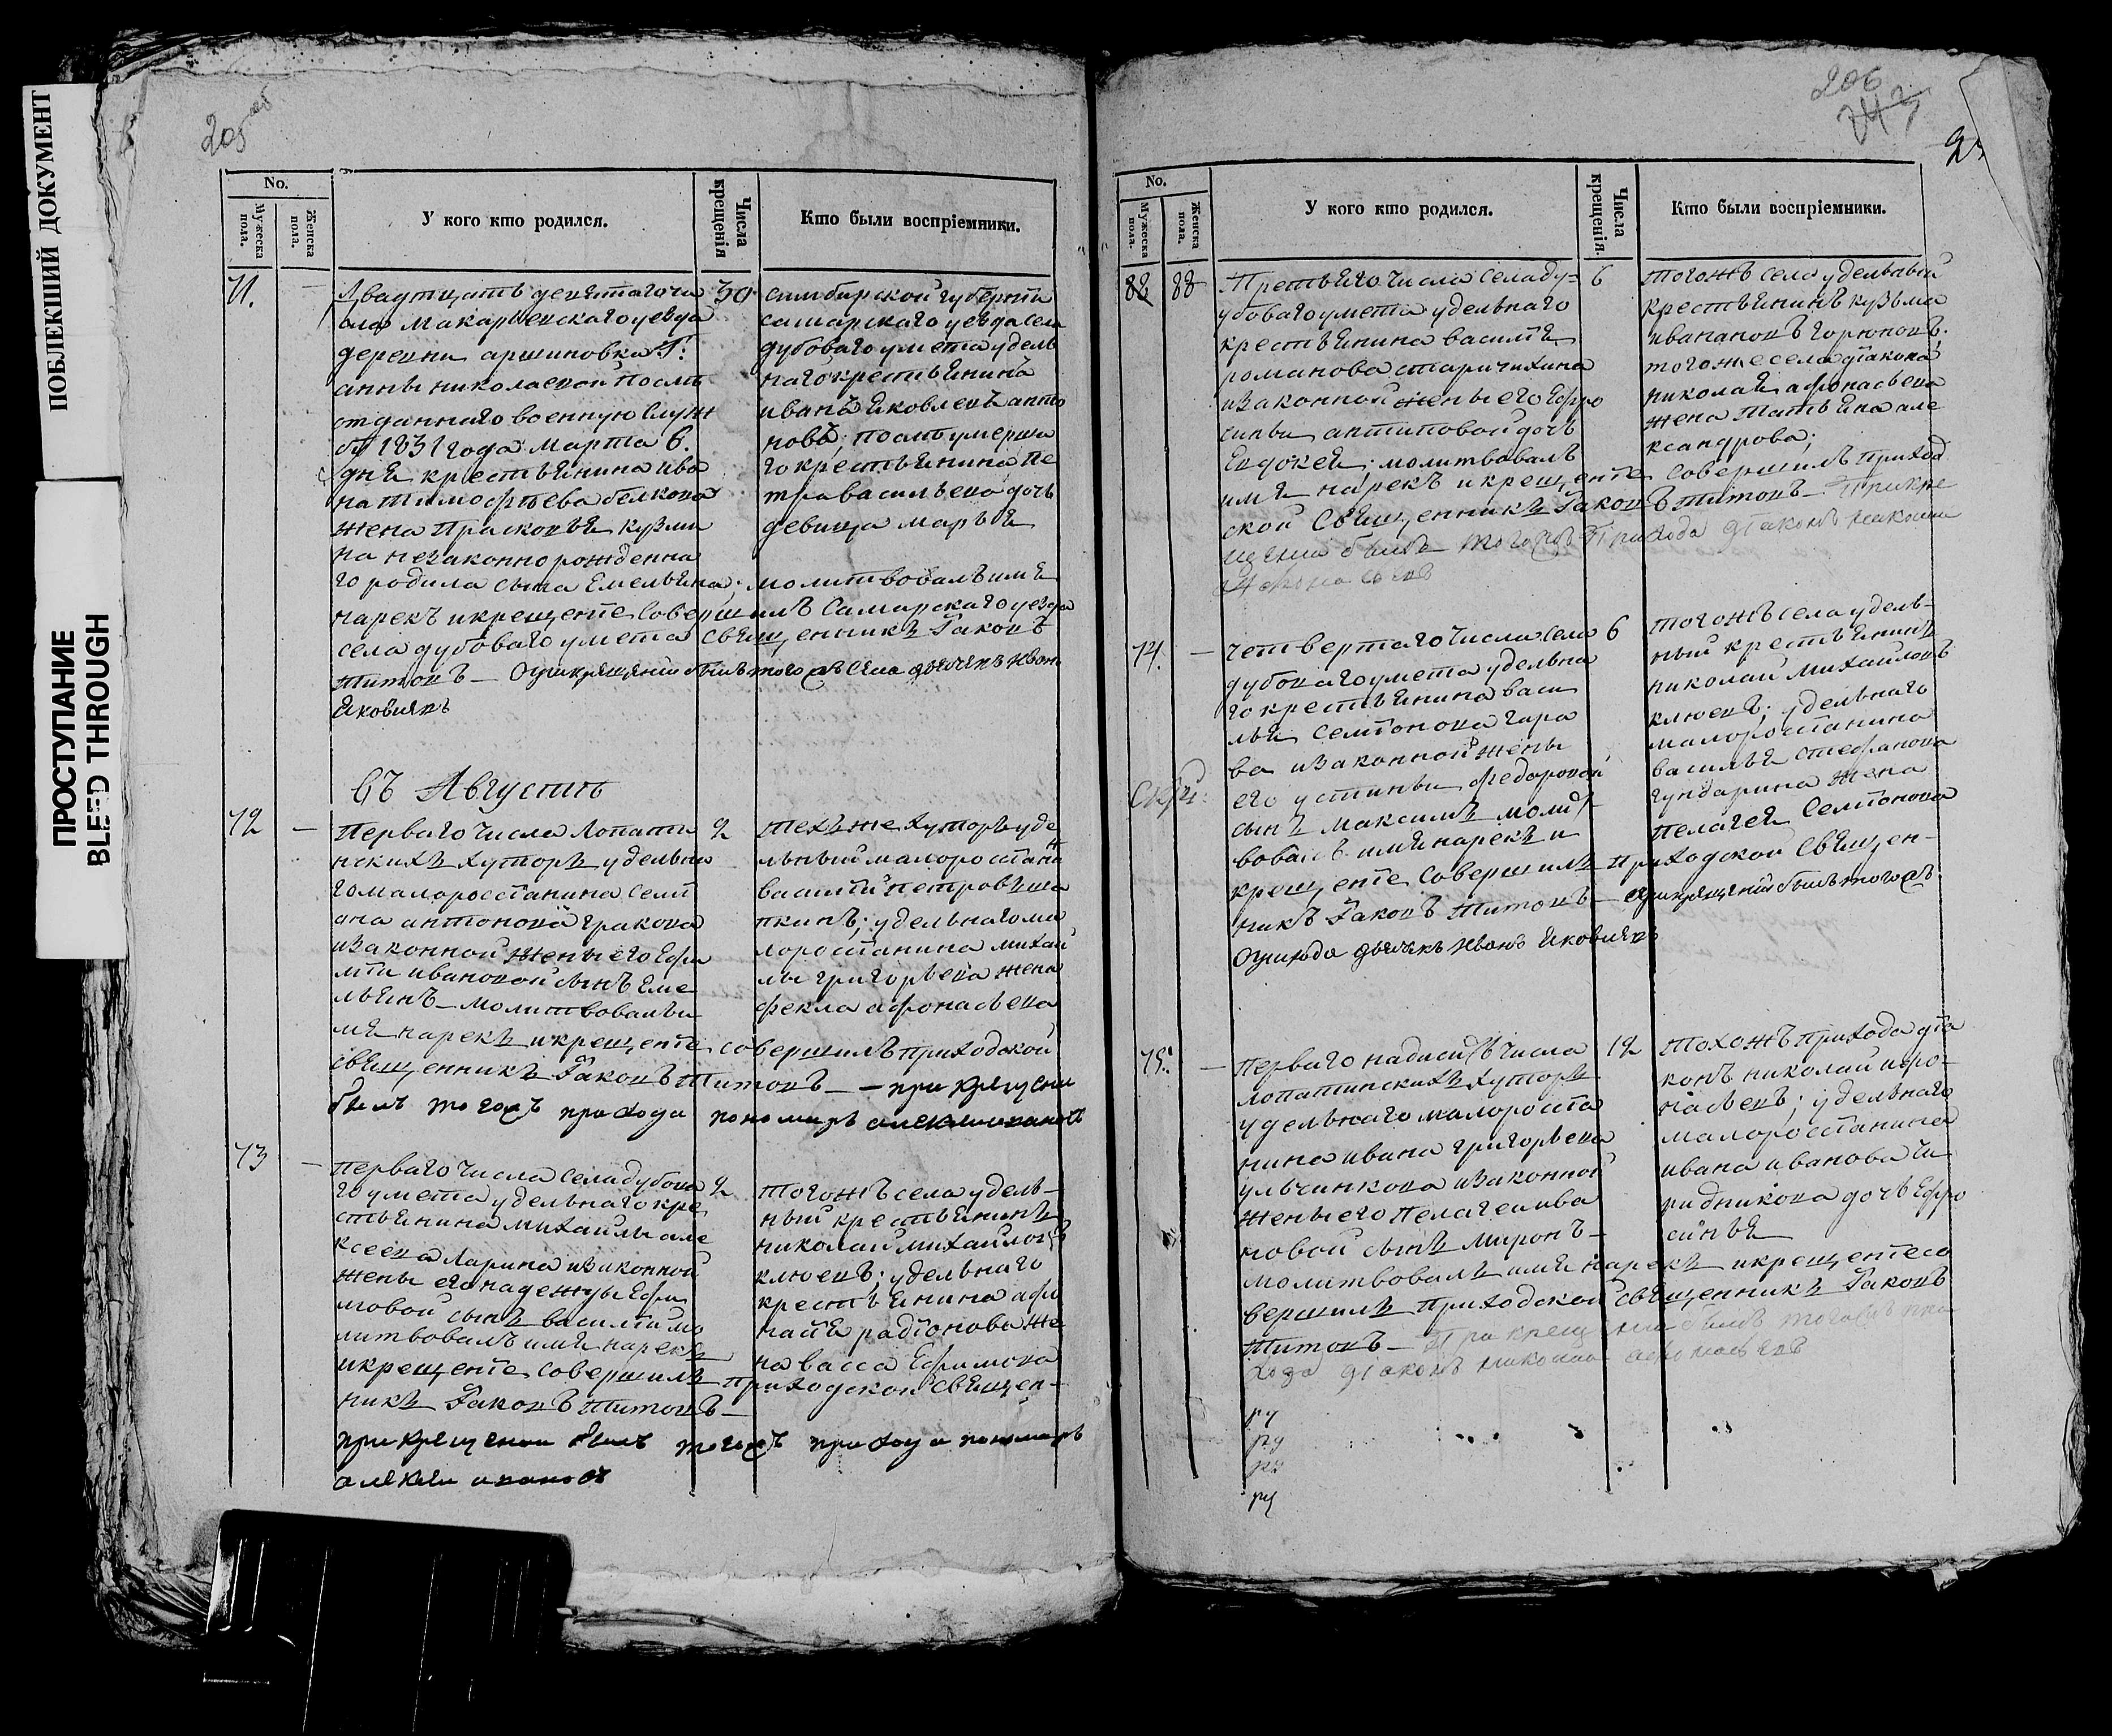 ПОБЛЕКШИЙ ДОКУМЕНТ
ПРОСТУПАНИЕ
BLEED THROUGH
205 об
No.
Мужеска пола.
Женска пола.
У кого кто родился.
Числа крещенія
Кто были воспріемники.
71. - Двадцать девятаго чи 30
сла Макарьевскаго уезда
деревни аршиновка Г:
анны николаевой послѣ
отданнаго военную служ
бу 1831 года марта 6.
дня крестьянина ива
на тимофѣева белкова
жена Прасковья кузми
на незаконнорожденна
го родила сына Емельяна; молитвовалъ имя
нарекъ и крещенiе совершилъ Самарскаго уезда
села дубоваго умета священникъ Iаковъ
Титовъ — при крещении былъ тогожъ села дьячекъ Иванъ
Яковлевъ
симбирской губернiи
самарскаго уезда села
дубоваго умета удель
наго крестьянина
иванъ Яковлевъ анто
новъ; послѣ умерша
го крестьянина Пе
тра васильева дочь
девица марья
Въ Августѣ
72 - Перваго числа Лопати 2
нскихъ хуторъ удельна
го малороссiанина семi
она антонова гракова
и законной жены его Ефи
мiи ивановой сынъ Еме
льянъ — молитвовалъ и
мя нарекъ и крещенiе совершилъ приходской
священникъ Iаковъ Титовъ — при крещении
былъ тогожъ прихода пономарь алексей ивановъ
техъ же хуторъ уде
льный малороссiани
василiй петровъ
пкинъ; удельнаго ма
лороссiанина михай
лы григорьева жена
фекла афонасьева
73 - перваго числа села дубова 2
го умета удельнаго кре
стьянина михайлы але
ксеева Ларина и законной
жены его надежды Ефи
мовой сынъ василiй мо
литвовалъ имя нарекъ
и крещенiе совершилъ приходской священ-
никъ Iаковъ Титовъ —
при крещении былъ тогожъ прихода пономарь
алексей ивановъ
тогожъ села удель-
ный крестьянинъ
николай михайловъ
клюевъ; удельнаго
крестьянина афа
насiя радiонова же
на васса Ефимова
206
No.
Мужеска пола.
Женска пола.
У кого кто родился.
Числа крещенія.
Кто были воспріемники.
88 88 Третьяго числа села ду- 6
убоваго умета удельнаго
крестьянина василiя
романова старичихина
и законной жены его Ефро
синьи антиповой дочь
Евдокея; молитвовалъ
имя нарекъ и крещенiе совершилъ приход
ской священникъ Iаковъ Титовъ — При кре
щении былъ тогожъ Прихода дiаконъ николай
Афонасьевъ
тогожъ села удельный
крестьянинъ кузьма
ивановъ горюновъ.
тогоже села дiакона
николая афонасьева
жена Татьяна але
ксандрова;
74. - четвертаго числа села 6
дубоваго умета удельна
го крестьянина васи
лья семiонова гара
ва и законной жены
его устиньи федоровой
сынъ максимъ молит
вовалъ имя нарекъ и
крещенiе совершилъ приходской священ-
никъ Iаковъ Титовъ — при крещении былъ тогожъ
прихода дьячекъ Иванъ Яковлевъ
тогожъ села удель-
ный крестьянинъ
николай михайловъ
клюевъ; удельнаго
малороссiанина
василья стефанова
гундарина жена
пелагея семiонова
75. - перваго надесять числа 12
лопатинскихъ хуторъ
удельнаго малоросciа
нина ивана григорьева
ульчинкова и законной
жены его пелагеи ива
новой сынъ миронъ —
молитвовалъ имя нарекъ и крещенiе со
вершилъ приходской священникъ Iаковъ
Титовъ — При крещении былъ тогожъ при
хода дiаконъ николай афонасьевъ
тогожъ прихода дiа
конъ николай афо-
насьевъ; удельнаго
малороссiанина
ивана иванова чи
ридникова дочь Ефро
синья
ру
ру
ру
ру